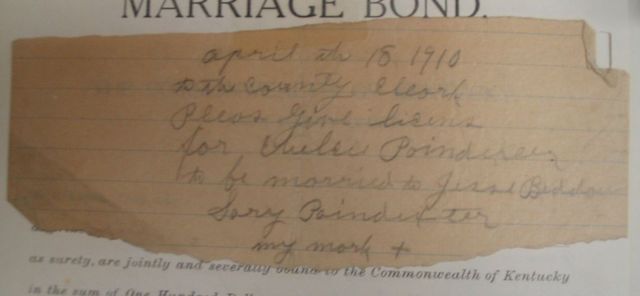 MARRIAGE BOND.
april th 18 1910
to th County Cleark
Pleas Give licens
for Poindexter
to be morried to Jesse
Sory Poindexter
my mork +
as surety, are jointly and severally bound to the Commonwealth of Kentucky
in the sum of One Hundred